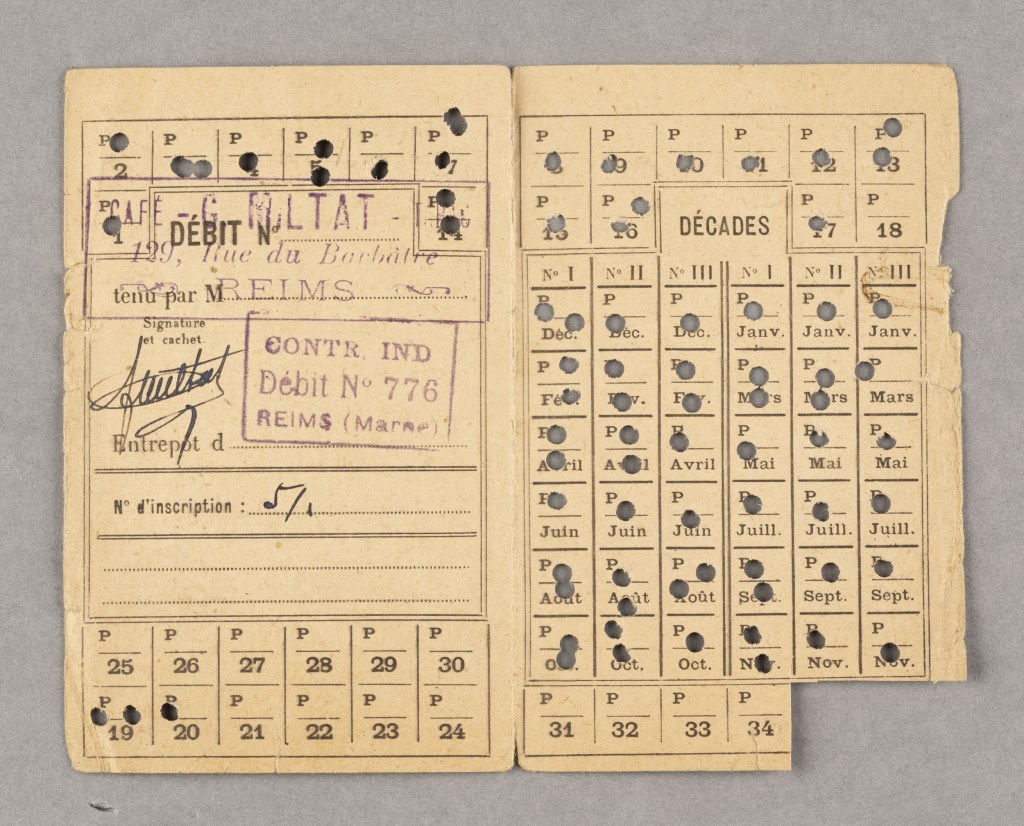 P P P P P P
2 4 5 7
CAFÉ - G. MILTAT -
P P
1 DÉBIT Nº 14
129, Rue du Barbâtre
tenu par M REIMS
Signature
et cachet.
CONTR. IND
Débit Nº 776
REIMS (Marne)
Entrepôt d
Nº d'inscription : 5/1
P P P P P P
25 26 27 28 29 30
P P P P P P
19 20 21 22 23 24
P P P P P P
8 9 10 11 12 13
P P P P
15 16 DÉCADES 17 18
Nº I Nº II Nº III Nº I Nº II Nº III
P P P P P P
Déc. Déc. Déc. Janv. Janv. Janv.
P P P P P P
Fév. Fév. Fév. Mars Mars Mars
P P P P P P
Avril Avril Avril Mai Mai Mai
P P P P P P
Juin Juin Juin Juill. Juill. Juill.
P P P P P P
Août Août Août Sept. Sept. Sept.
P P P P P P
Oct. Oct. Oct. Nov. Nov. Nov.
P P P P
31 32 33 34